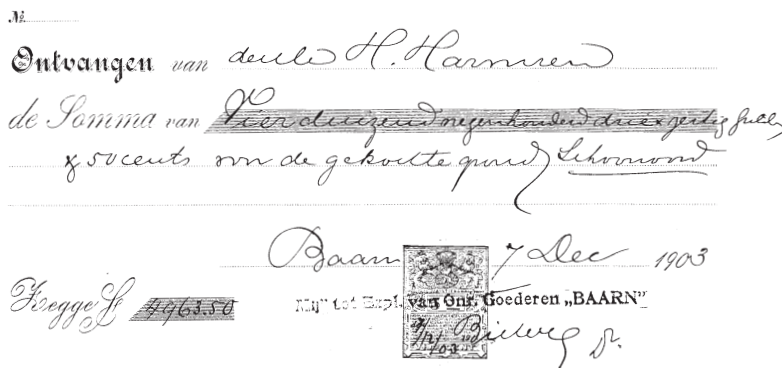 No.
Ontvangen van den H. Harmsen
de Somma van Vierduizend negenhonderd drie & zestig guld
& 50 cents voor de gekochte grond Schoonoord
Baarn 7 Dec 1903
Zegge f 4963.50
Mij tot Expl. van Onr. Goederen „BAARN”
7/12/03
Dr.